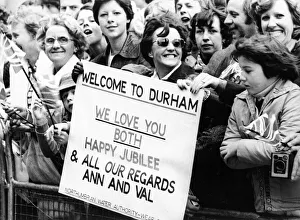 WELCOME TO DURHAM
WE LOVE YOU
BOTH
HAPPY JUBILEE
& ALL OUR REGARDS
ANN AND VAL
NORTHUMBRIAN WATER AUTHORITY-WEAR